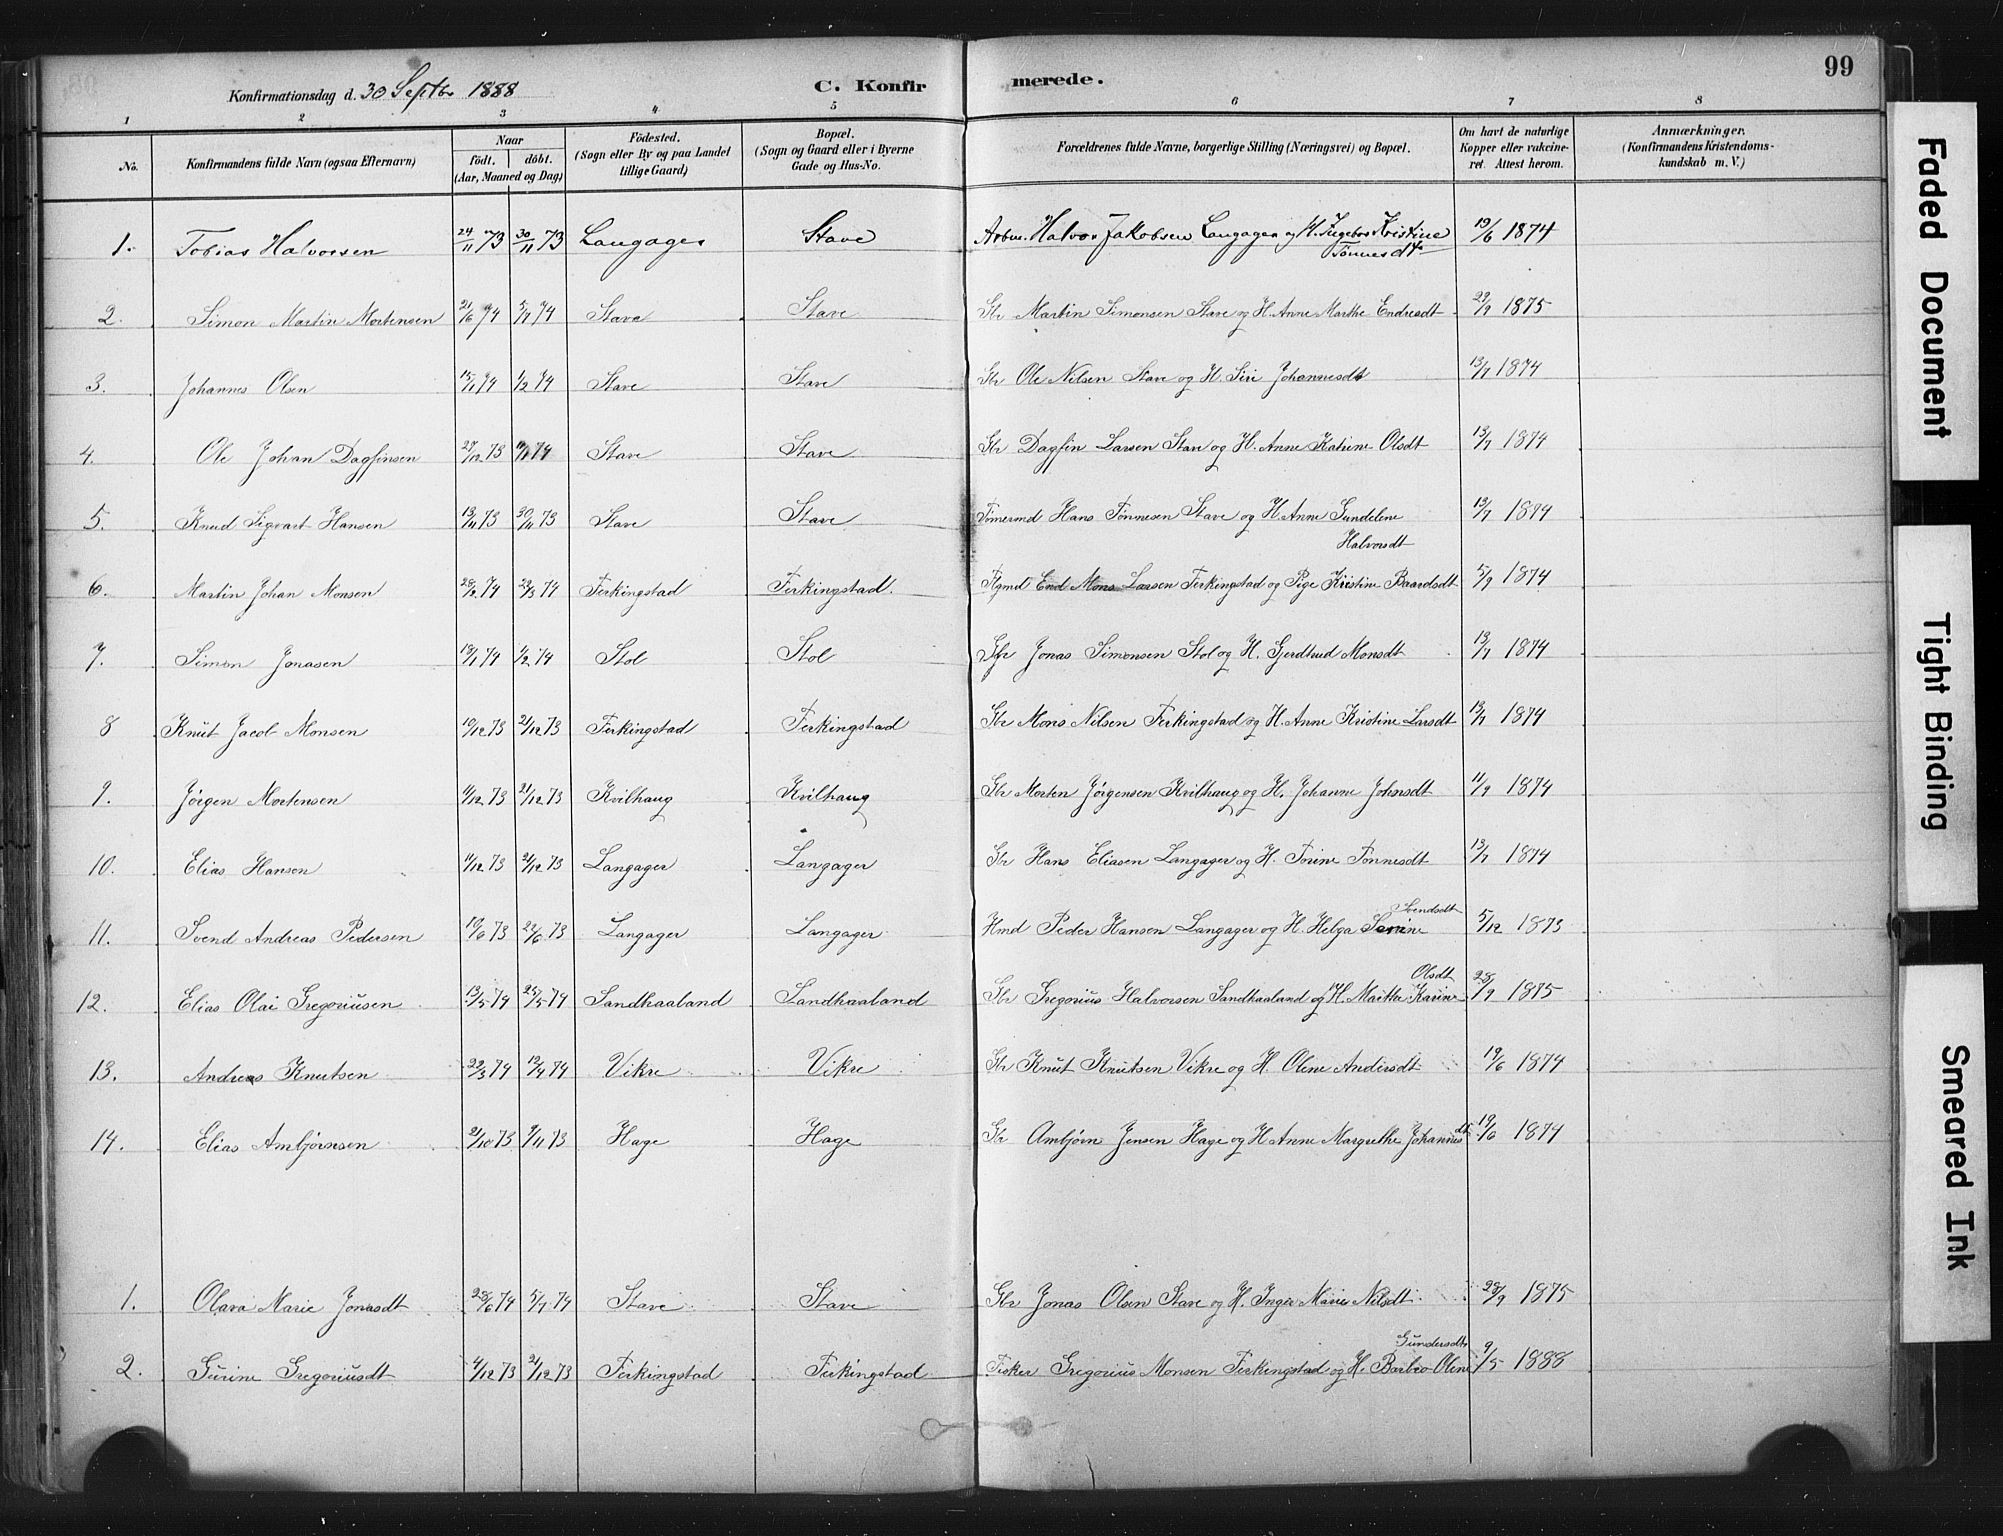 99
Konfirmationsdag d. 30 Septbr 1888
C. Konfirmerede.
1 2 3 4 5 6 7 8
No.
Konfirmandens fulde Navn (ogsaa Efternavn)
Naar
födt. döbt.
(Aar, Maaned og Dag)
Födested.
(Sogn eller By og paa Landet
tillige Gaard)
Bopæl.
(Sogn og Gaard eller i Byerne
Gade og Hus-No.
Forældrenes fulde Navne, borgerlige Stilling (Næringsvei) og Bopæl.
Om havt de naturlige
Kopper eller vaksine-
ret. Attest herom.
Anmærkninger.
(Konfirmandens Kristendoms-
kundskab m. V.)
1. Tobias Halvorsen 24/11 73 30/11 73 Langager Stave Arbm. Halvor Jakobsen Langager og H. Ingebor Kristine 19/6 1874
Tönnesdt
2. Simon Martin Mortensen 21/6 74 5/7 74 Stave Stave Gbr Martin Simonsen Stave og H. Anne Marthe Endresdt 1875
3. Johannes Olsen 15/1 74 1/2 74 Stave Stave Gbr Ole Nilsen Stave og H. Siri Johannesdt 13/7 1874
4. Ole Johan Dagfinsen 27/12 73 74 Stave Stave Gbr Dagfin Larsen Stave og H. Anne Katrine Olsdt 13/7 1874
5. Knud Sigvart Hansen 13/11 73 30/11 73 Stave Stave Tømermd Hans Tønnesen Stave og H. Anne Gundelene 13/7 1874
Halvorsdt
6. Martin Johan Monsen 28/2 74 22/3 74 Ferkingstad Ferkingstad. Mons Larsen Ferkingstad og Pige Kristine Baardsdt 5/9 1874
7. Simon Jonasen 74 1/2 74 Stol Stol Gbr Jonas Simonsen Stol og H. Gjerdtrud Monsdt 13/7 1874
8 Knut Jacob Monsen 10/12 73 21/12 73 Ferkingstad Ferkingstad Gbr Mons Nilsen Ferkingstad og H. Anne Kristine Larsdt 13/7 1874
9. Jørgen Mortensen 4/12 73 21/12 73 Kvilhaug Kvilhaug Gbr Morten Jörgensen Kvilhaug og H. Johanne Johnsdt 11/9 1874
10. Elias Hansen 11/12 73 21/12 73 Langager Langager Gbr Hans Eliasen Langager og H. Torine Tonnesdt 13/7 1874
11. Svend Andreas Pedersen 10/6 73 22/6 73 Langager Langager Hmd Peder Hansen Langager og H. Helga Svendsdt 5/12 1873
12. Elias Olai Gregoriusen 13/5 74 25/5 74 Sandhaaland Sandhaaland Gbr Gregorius Halvorsen Sandhaaland og H. Martha Karine Olsdt 28/9 1875
13. Andreas Knutsen 22/3 74 12/4 74 Vikre Vikre Gbr Knut Knutsen Vikre og H Olene Andersdt 19/6 1874
14. Elias Ambjørnsen 2/10 73 9/11 73 Hage Hage Gbr Ambjørn Jensen Hage og H Anne Margrethe Johannesdt 19/6 1874
1. Olava Marie Jonasdt 28/6 74 5/7 74 Stave Stave Gbr Jonas Olsen Stave og H. Inger Marie Nilsdt 28/9 1875
2. Gurine Gregoriusdt 4/12 73 21/12 73 Ferkingstad Ferkingstad Fisker Gregorius Monsen Ferkingstad og H. Barbro Oline Gundersdtr 9/5 1888
Faded Document
Tight Binding
Smeared Ink